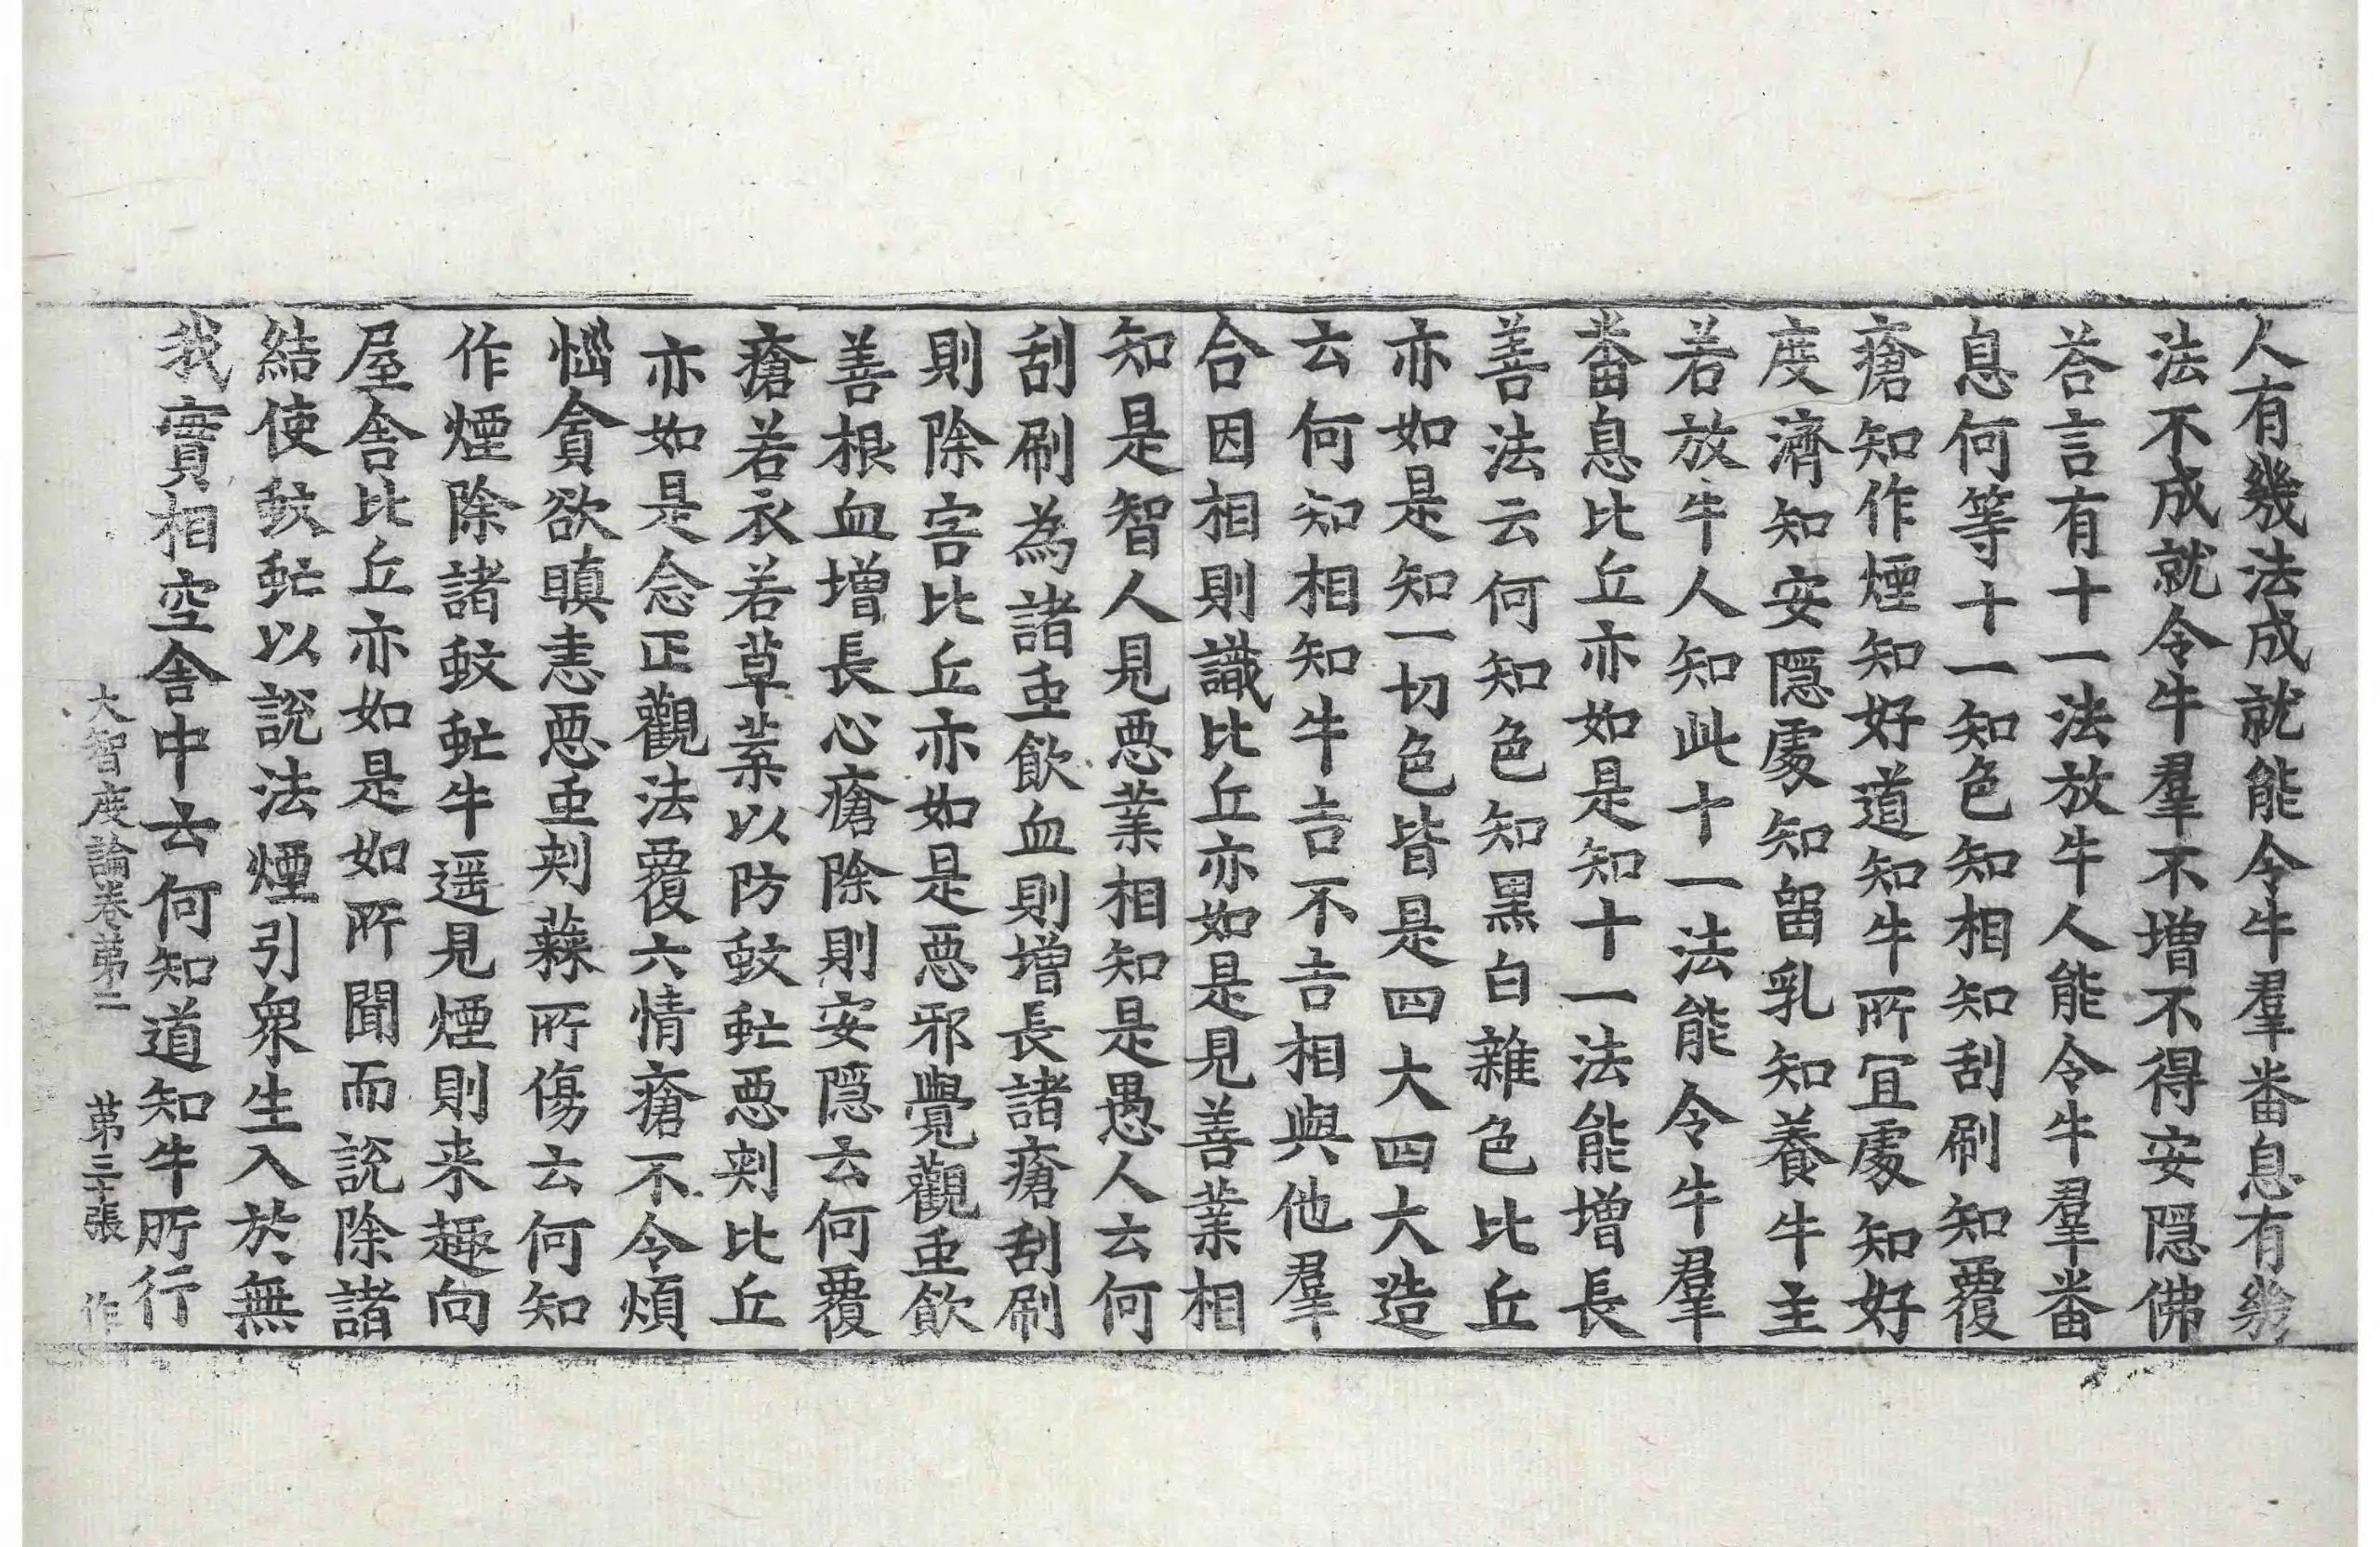 人有幾法成就能令牛羣番息有幾
法不成就令牛羣不增不得安隱佛
荅言有十一法放牛人能令牛羣番
息何等十一知色知相知刮刷知覆
瘡知作煙知好道知牛所宜處知好
度濟知安隱處知留乳知養牛主
若放牛人知此十一法能令牛羣
番息比丘亦如是知十一法能增長
善法云何知色知黑白雜色比丘
亦如是知一切色皆是四大四大造
云何知相知牛吉不吉相與他羣
合因相則識比丘亦如是見善業相
知是智人見惡業相知是愚人云何
刮刷為諸虫飲血則增長諸瘡刮刷
則除害比丘亦如是惡邪覺觀虫飲
善根血增長心瘡除則安隱云何覆
瘡若衣若草葉以防蚊虻惡刺比丘
亦如是念正觀法覆六情瘡不令煩
惱貪欲瞋恚惡虫刺蕀所傷云何知
作煙除諸蚊虻牛遥見煙則来趣向
屋舍比丘亦如是如所聞而說除諸
結使蚊虻以說法煙引衆生入於無
我實相空舍中云何知道知牛所行
大智度論卷第二 第三十張 作